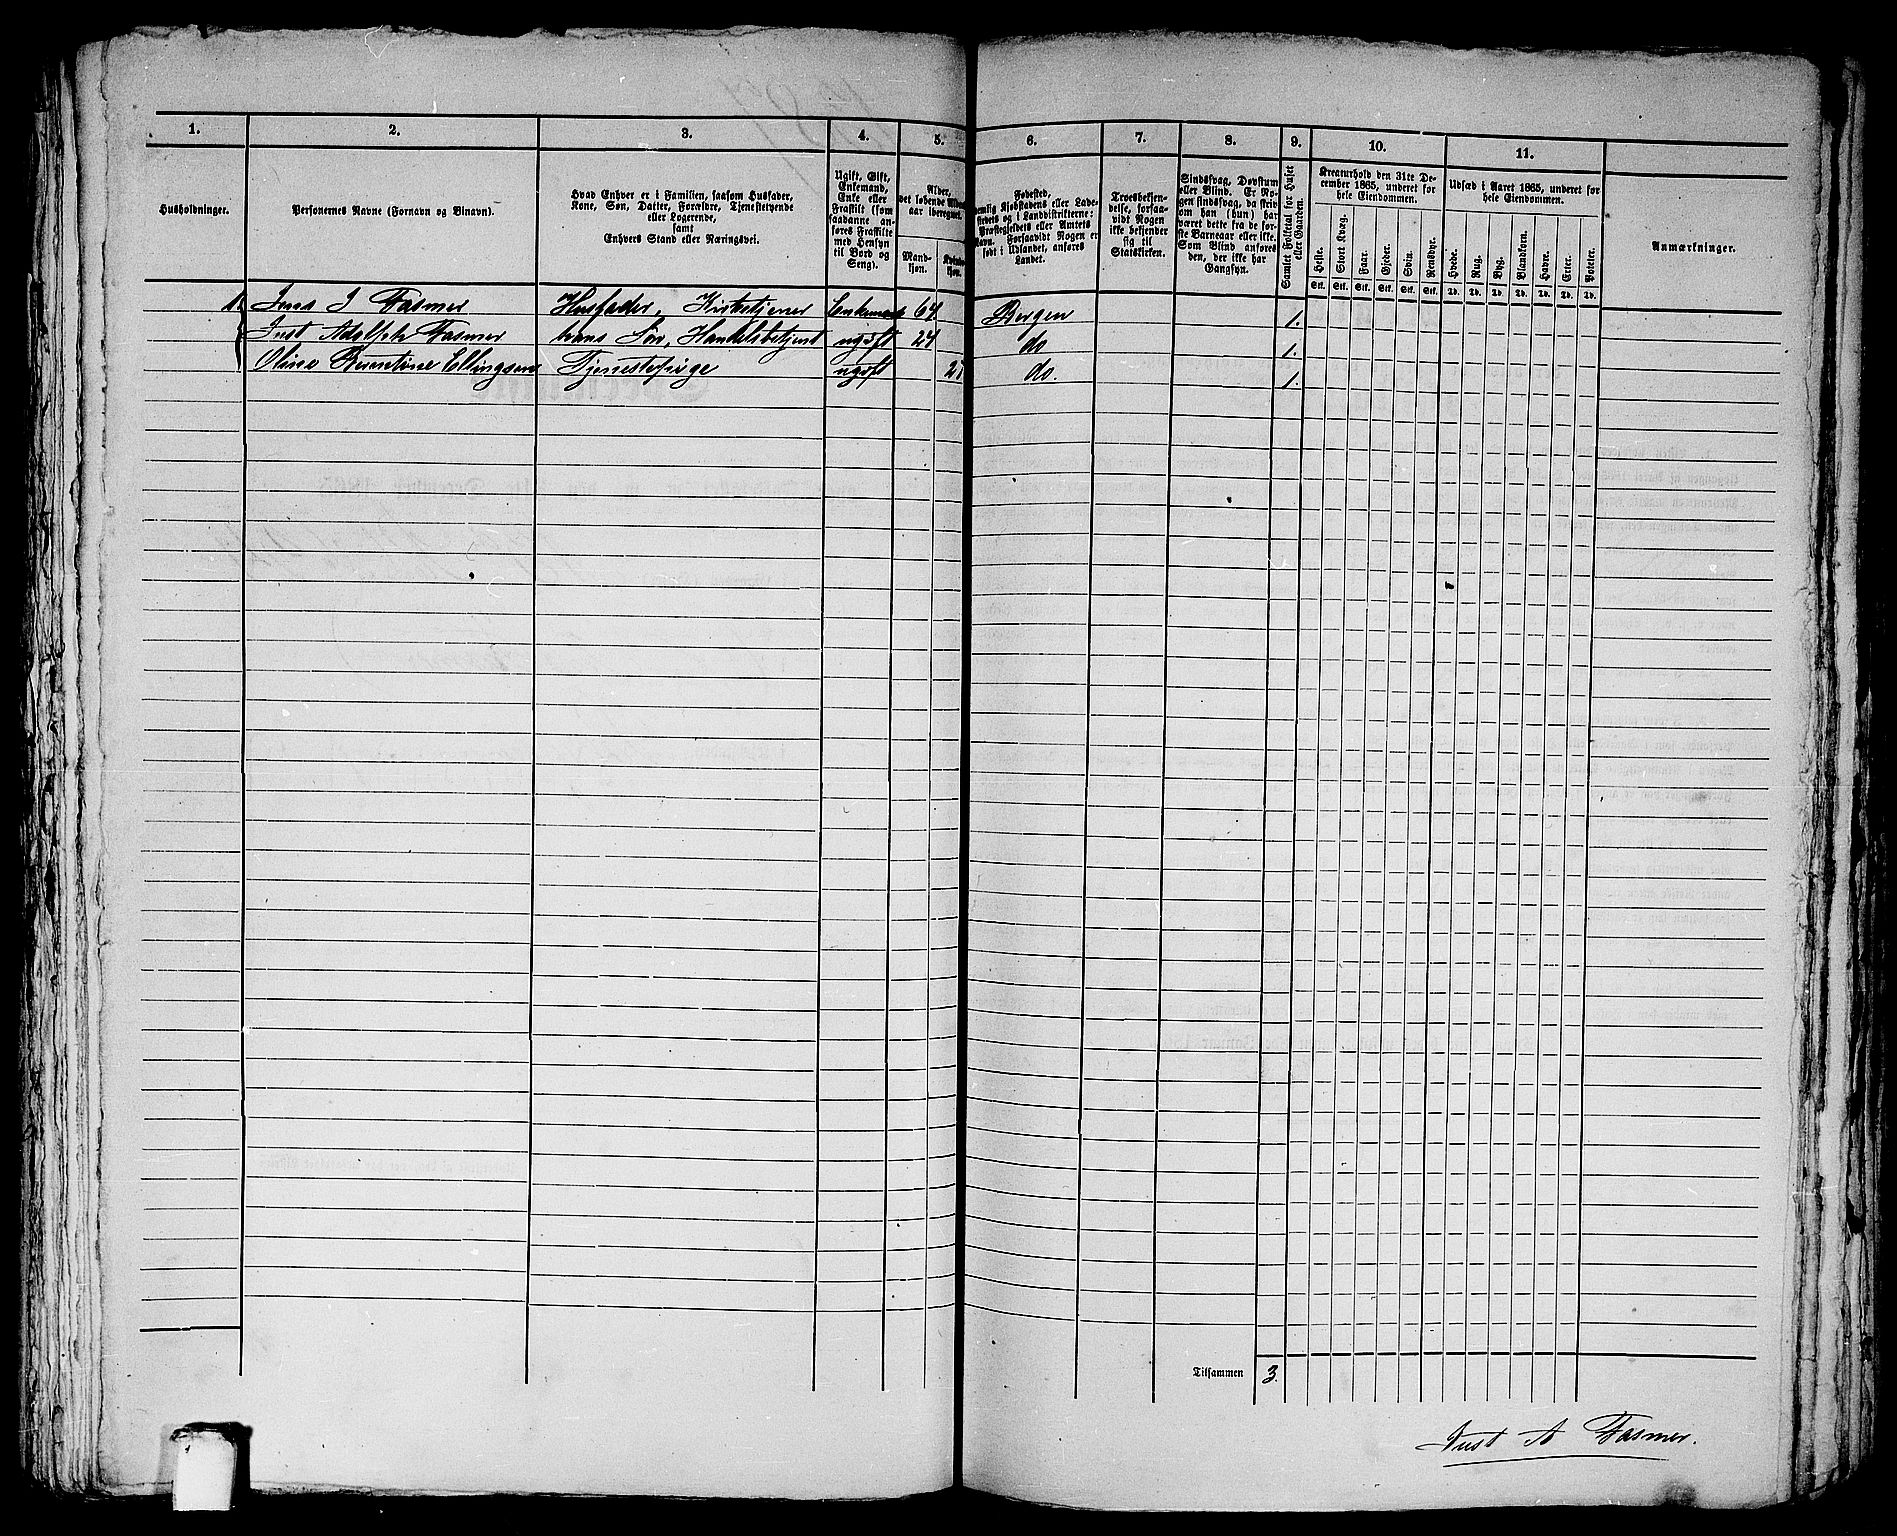 1. 2. 3. 4. 5. 6. 7. 8. 9. 10. 11.
Husholdninger.
Personernes Navne (Fornavn og Binavn).
Hvad Enhver er i Familien, saasom Husfader,
Kone, Søn, Datter, Forældre, Tjenestetyende
eller Logerende,
samt
Enhvers Stand eller Næringsvei.
Ugift, Gift,
Enkemand,
Enke eller
Fraskilt (som
saadanne an-
føres Fraskilte
med Hensyn
til Bord og
Seng).
Alder,
det løbende
aar iberegnet.
Mand-
kjøn.
Fødested,
Troesbekjen-
delse, forsaa-
vidt Nogen
ikke bekjender
sig til
Statskirken.
Sindssvag, Døvstum
eller Blind. Er No-
gen sindssvag, da skriv
om han (hun) har
været dette fra de før-
ste Barneaar eller ikke.
Som Blind anføres
den, der ikke har
Gangsyn.
Samlet Folketal for Huset
eller Gaarden.
Kreaturhold den 31te De-
cember 1865, underet for
hele Eiendommen.
Heste. Stort Kvæg. Faar. Gjeder. Svin. Rensdyr.
Stk. Stk. Stk. Stk. Stk. Stk.
Udsæd i Aaret 1865, underet for
hele Eiendommen.
Hvede. Rug. Byg. Blandkorn. Havre. Erter. Poteter.
Td. Td. Td. Td. Td. Td. Td.
Anmærkninger.
1 Jens J Fasmer Husfader, Kirketjener Enkemand 64 Bergen 1.
Just Adolph Fasmer hans Søn, Handelsbetjent ugift 24 do 1.
Oline Berentine Ellingsen Tjenestepige ugift do. 1.
Tilsammen 3.
Just A Fasmer.